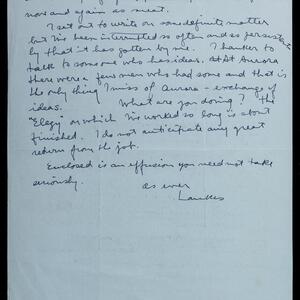 now and again as meat.
I set out to write on some definite matter
but I've been interrupted so often and so persistently
by that it has gotten by me. I hanker to
talk to someone who has ideas. At Aurora
there were a few men who had some and that is
the only thing I miss of Aurora - exchange of
ideas. What are you doing? The
"Elegy" on which I've worked so long is about
finished. I do not anticipate any great
return from the job.
Enclosed is an effusion you need not take
seriously.
as ever
Lankes